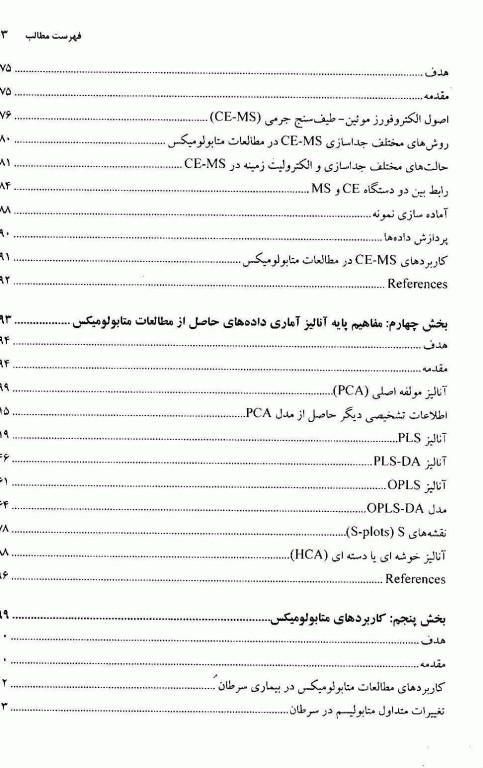 فهرست مطالب ۳
هدف ۷۵
مقدمه ۷۵
اصول الکتروفورز موئین- طیف‌سنج جرمی (CE-MS) ۷۶
روش‌های مختلف جداسازی CE-MS در مطالعات متابولومیکس ۸۰
حالت‌های مختلف جداسازی و الکترولیت زمینه در CE-MS ۸۱
رابط بین دو دستگاه CE و MS ۸۴
آماده سازی نمونه ۸۸
پردازش داده‌ها ۹۰
کاربردهای CE-MS در مطالعات متابولومیکس ۹۱
References ۹۲
بخش چهارم: مفاهیم پایه آنالیز آماری داده‌های حاصل از مطالعات متابولومیکس ۹۳
هدف ۹۴
مقدمه ۹۴
آنالیز مولفه اصلی (PCA) ۹۹
اطلاعات تشخیصی دیگر حاصل از مدل PCA ۱۵
آنالیز PLS ۱۹
آنالیز PLS-DA ۴۶
آنالیز OPLS ۶۱
مدل OPLS-DA ۶۴
نقشه‌های S (S-plots) ۷۸
آنالیز خوشه ای یا دسته ای (HCA) ۸۸
References ۹۶
بخش پنجم: کاربردهای متابولومیکس ۹۹
هدف ۰
مقدمه ۰
کاربردهای مطالعات متابولومیکس در بیماری سرطان ۲
تغییرات متداول متابولیسم در سرطان ۳